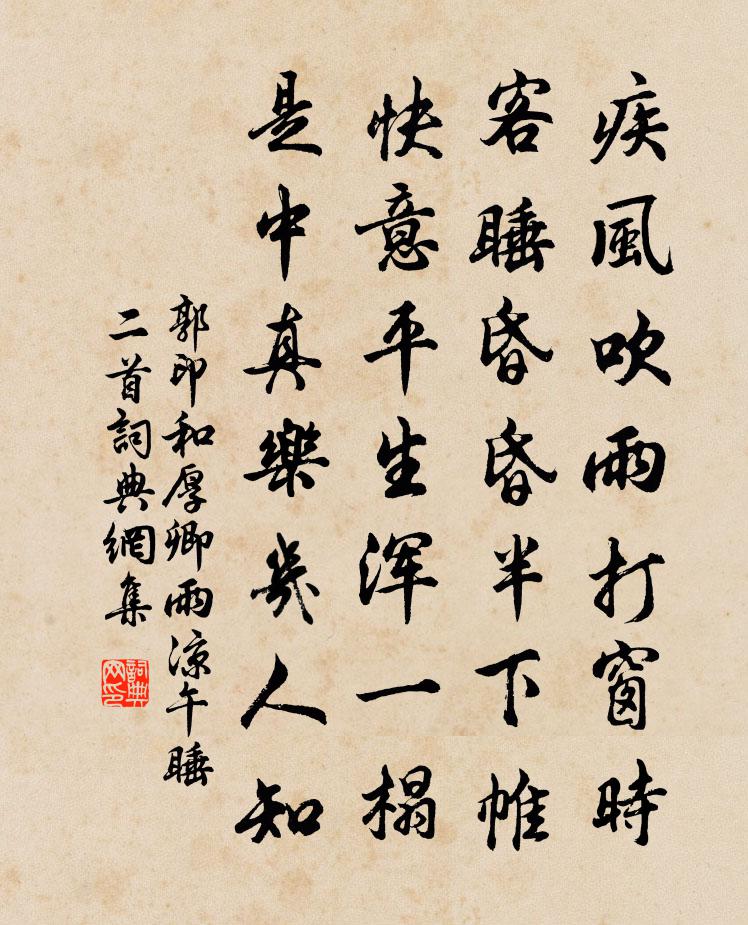 疾風吹雨打窗時
客睡昏昏半下帷
快意平生渾一榻
是中真樂幾人知
郭印和厚卿雨凉午睡
二首詞典網集
詞典网印